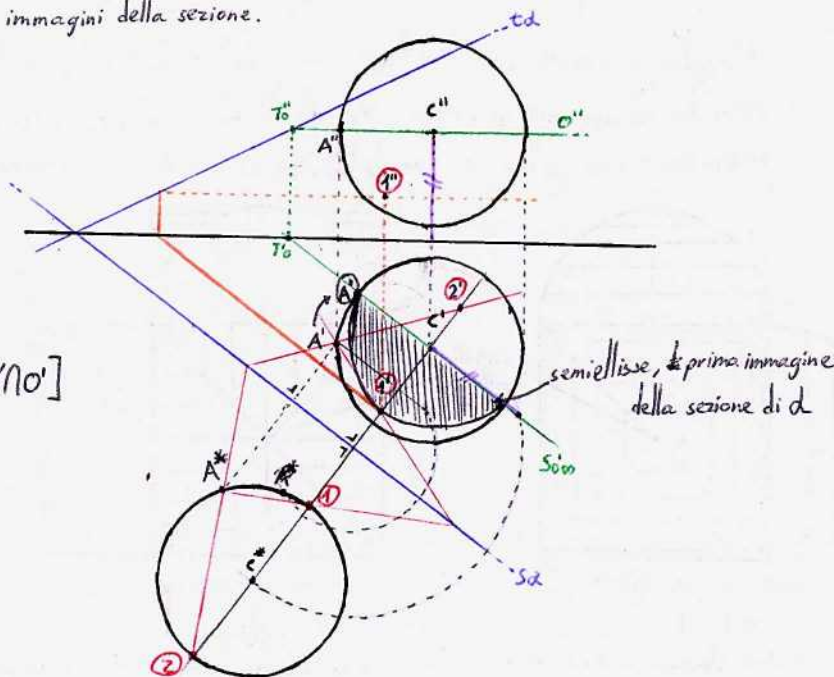 immagini della sezione.
tα
T₀"
C"
o"
A"
1"
T₀'
A'
2'
C'
A'
1'
∩o']
semiellisse, prima immagine
della sezione di α
S'₀∞
A*
1
C*
sα
2